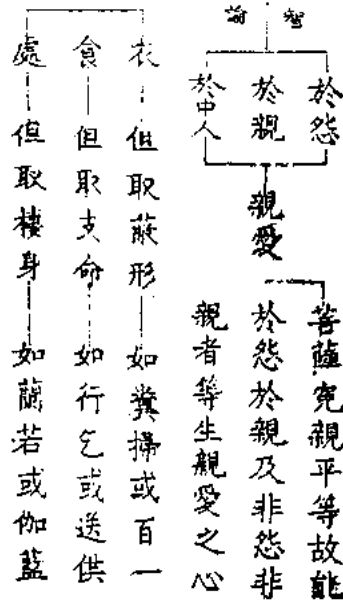 智論
於怨
於親
於中人
親愛
菩薩冤親平等故能
於怨於親及非怨非
親者等生親愛之心
衣 但取蔽形 如糞掃或百一
食 但取支命 如行乞或送供
處 但取棲身 如蘭若或伽藍